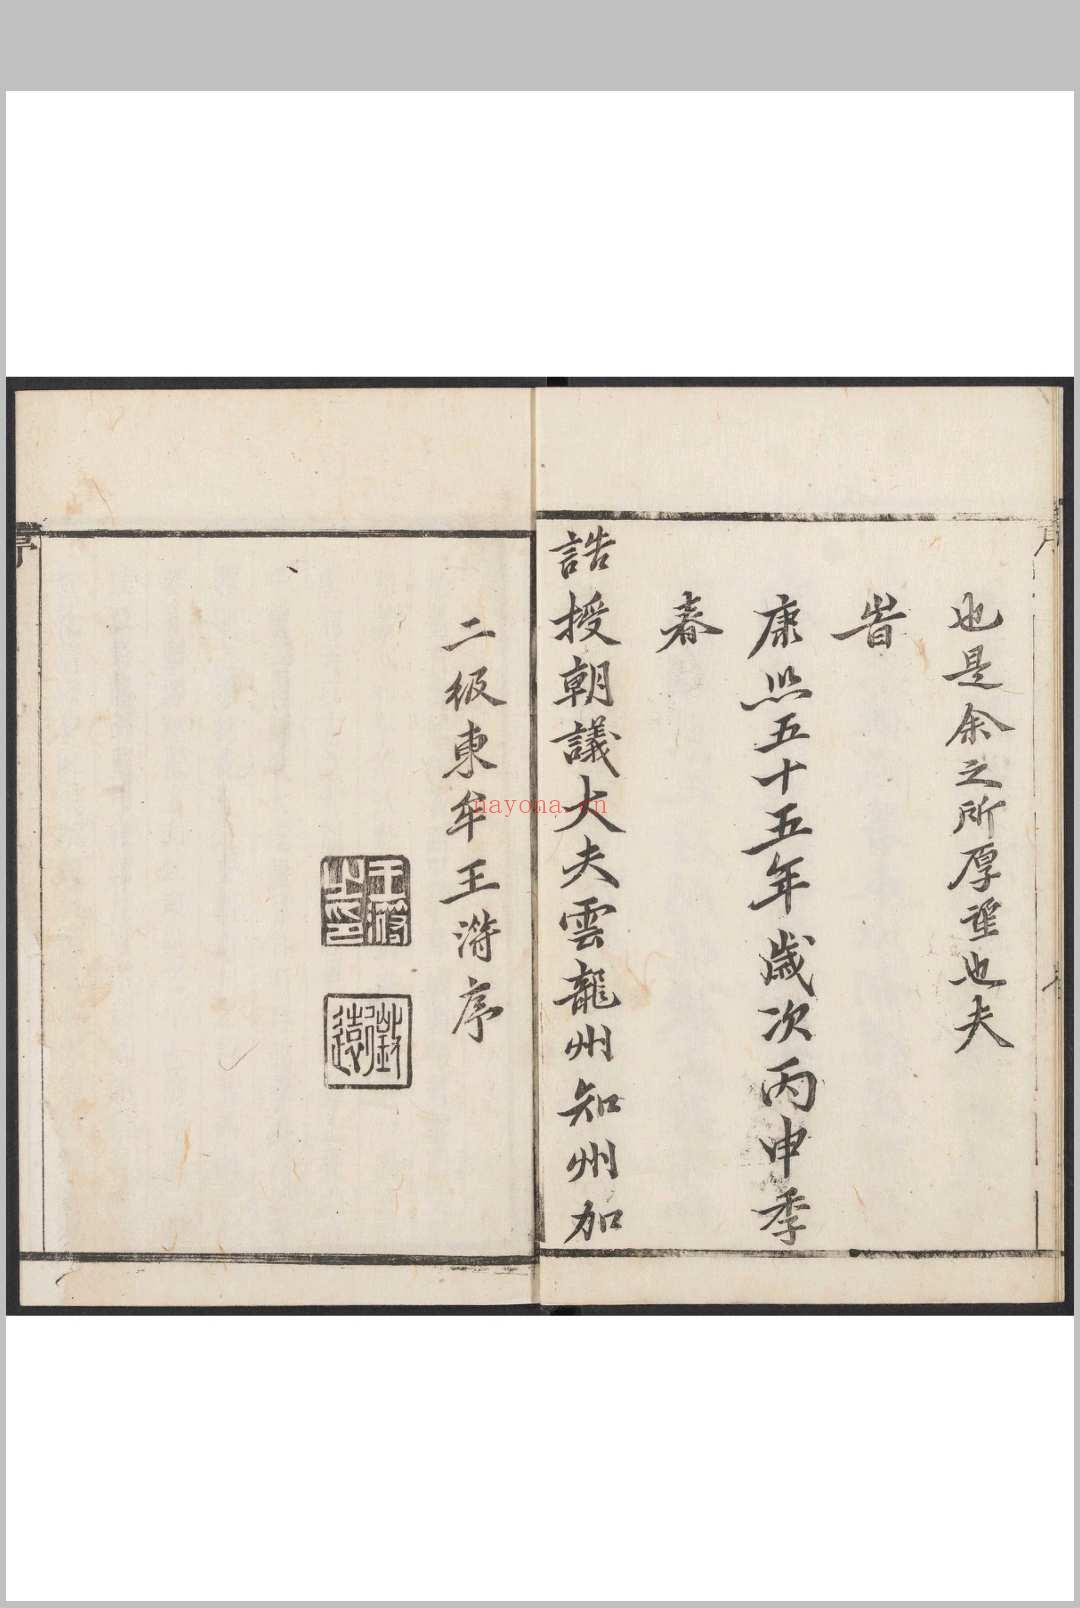 也是余之所厚望也夫
旹
康熙五十五年歲次丙申季
春
誥授朝議大夫雲龍州知州加
二級東牟王潃序
nayona.cn
序